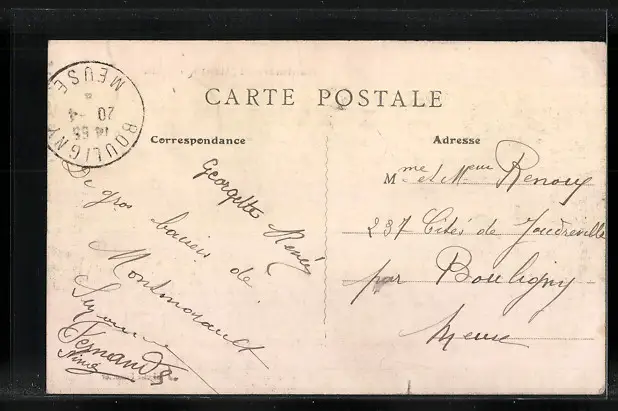 CARTE POSTALE
Correspondance
Adresse
BOULIGNY
14 55
20 - 4
MEUSE
De gros baisers de
Montmorand
Georgette René
Suzanne
Fernande
Nine
Mme et Meur Renouy
237 Cités de Joudreville
par Bouligny
Meuse